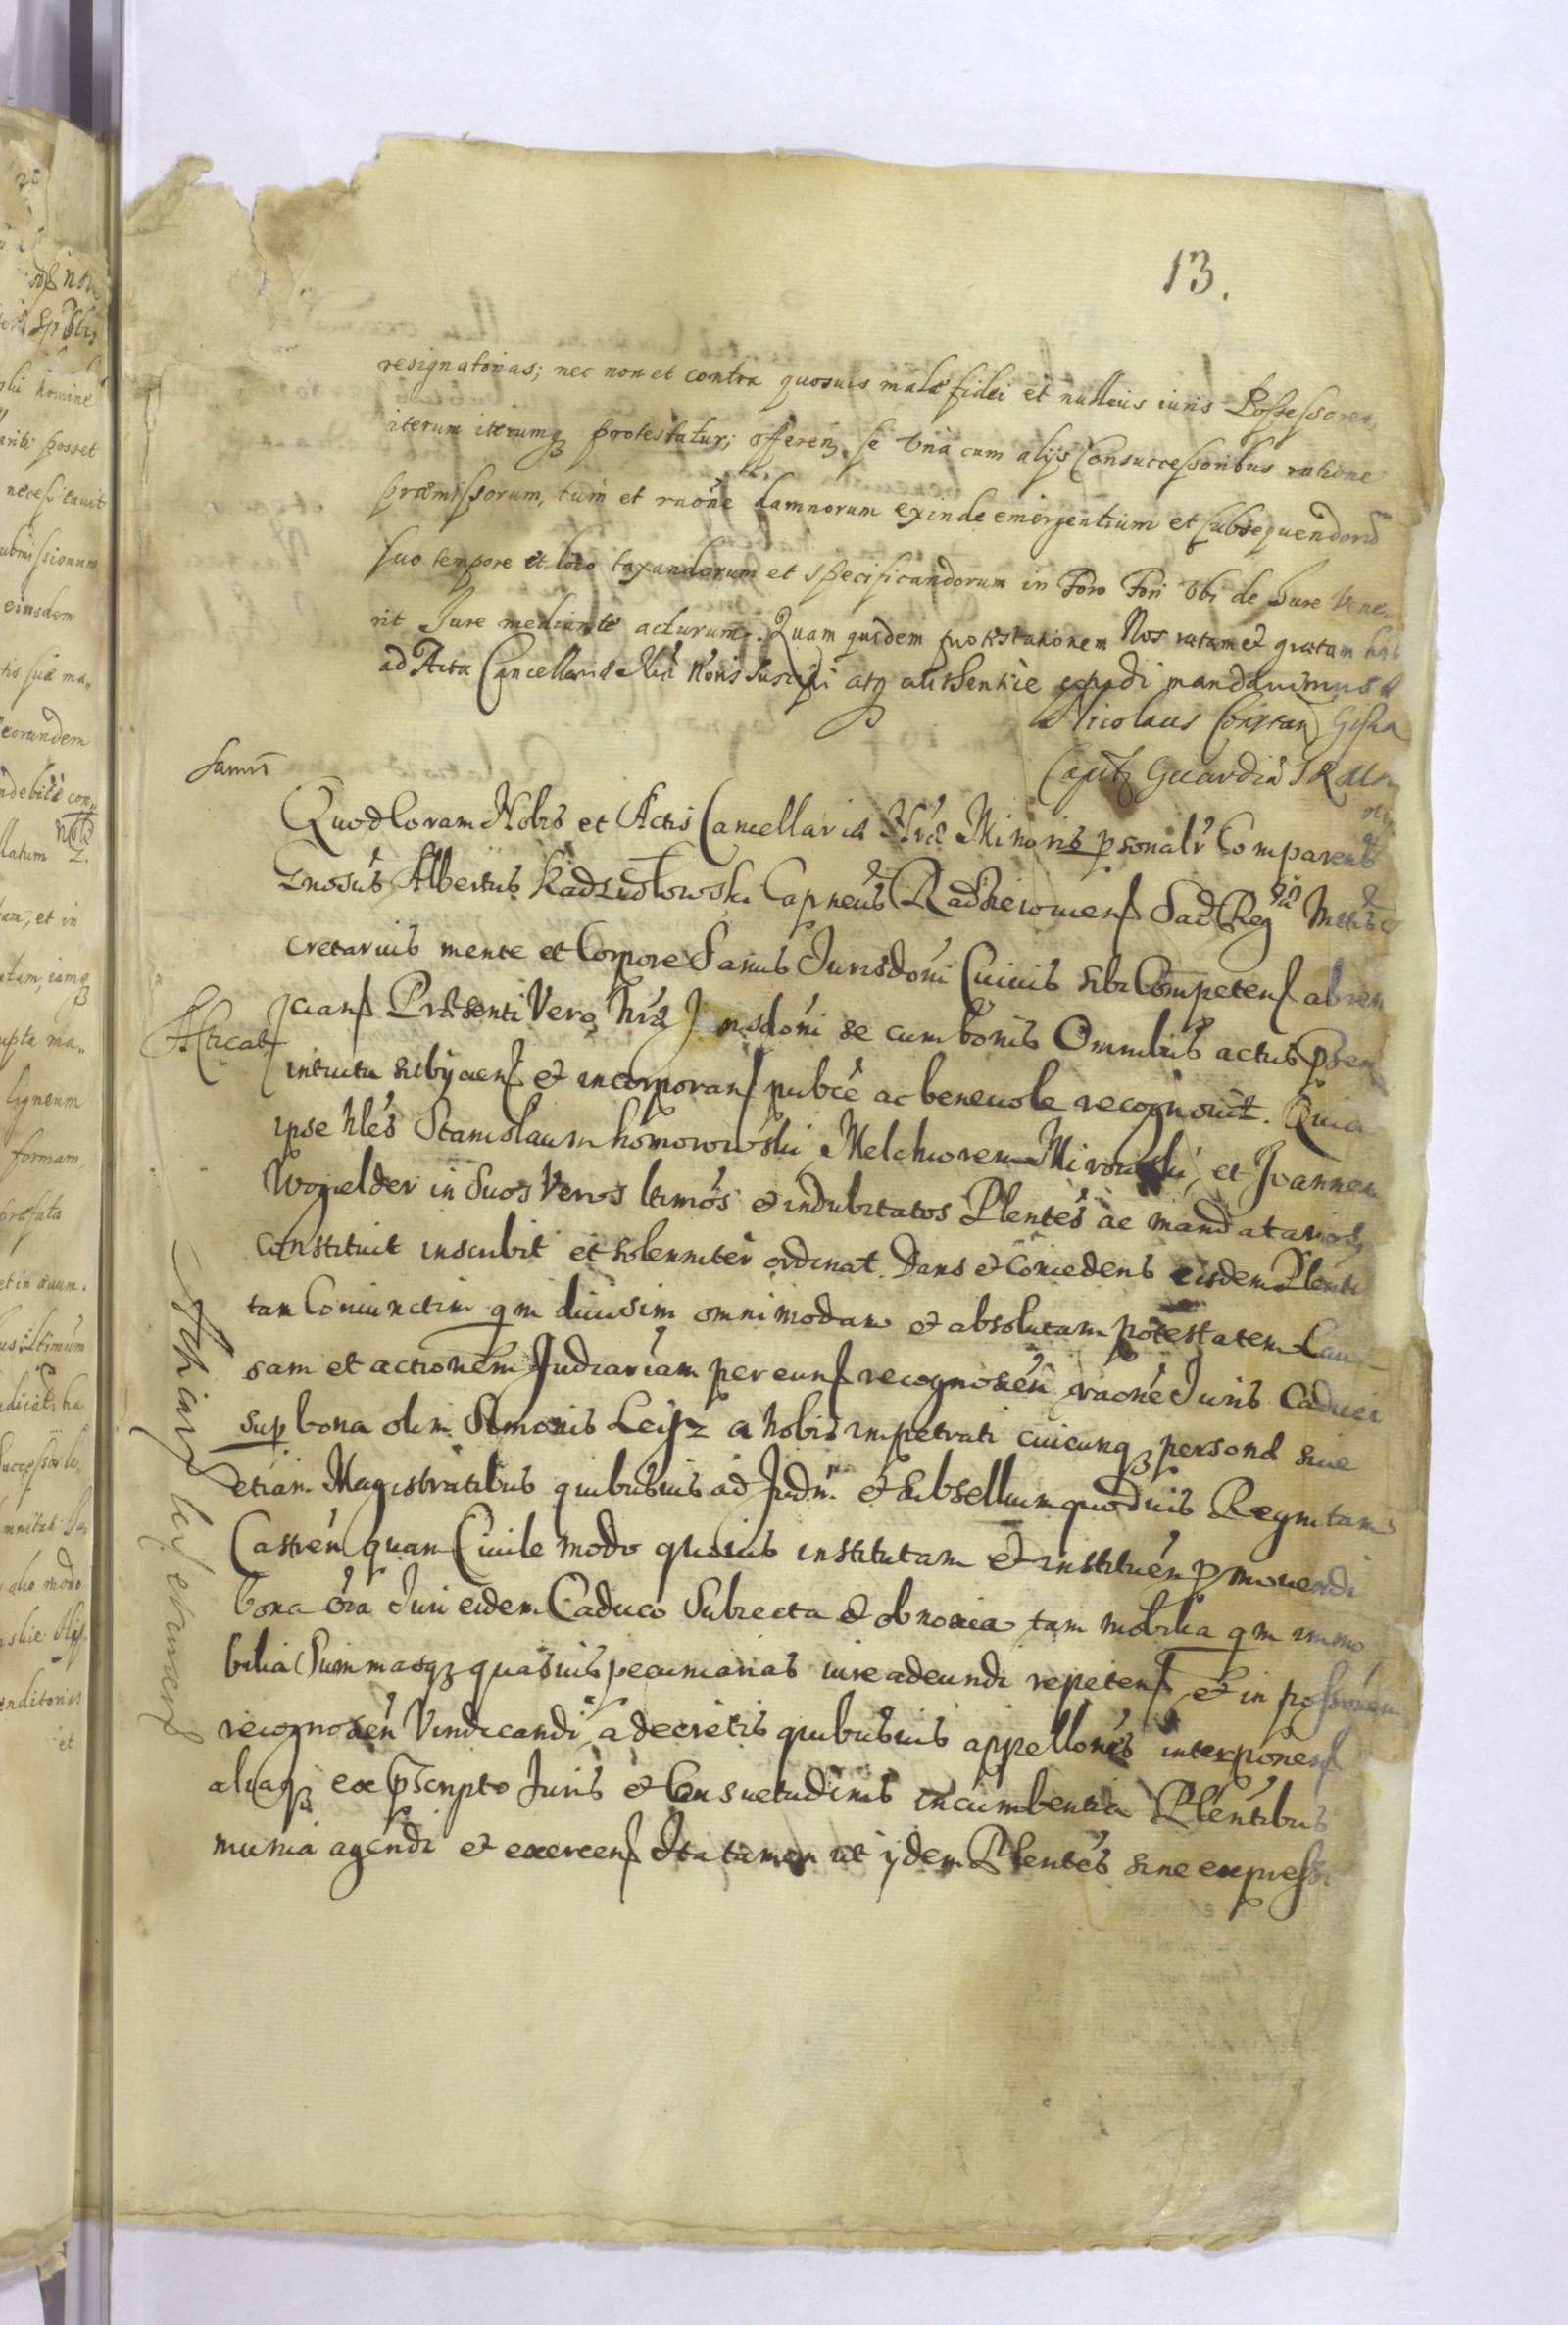 13.
resignatorias; nec non et contra quosuis malæ fidei et nullius iuris Possessores,
iterum iterumq protestatur; offerens se vna cum alijs Consuccessoribus ratione
præmissorum, tum et raone damnorum exinde emergentium et subsequendorũ
suo tempore et loco taxandorum et specificandorum in Foro Fori vbi de Iure Vene
rit Iure mediante acturum. Quam quidem protestationem Nos ratam et gratam hab
ad Acta Cancellariæ Min Nõris suscipi atq authentice extradi mandauimus
Nicolaus Constan Gisza
Capit Guardiæ S R M
Quod Coram Nobis et Actis Cancellariæ Nræ Minoris psonalr Comparens
Gnosus Albertus Kadzidłowski Capneus Radzieiouiens Sac Reg Mttis
cretarius mente et Corpore Sanus Jurisdoni Cuiuis sibi Competens abren
cians Præsenti Vero Nræ Jurisdoni se cum bonis Omnibus actus Psen
intuitu subijciens et incorporans pubcè ac beneuole recognouit. Quia
ipse Nles Stanislaum Komorowski, Melchiorem Mirowski, et Joannem
Wogielder in Suos Veros ltimos et indubitatos Plentes ac mandatarios
Constituit inscribit et solenniter ordinat. Dans et Concedens eisdem Plenti
tam Coniunctim qm diuisim omnimodam et absolutam potestatem Cau
sam et actionem Judiariam per euns recognoscen raone Juris Caduci
sup bona olim Simonis Leyz a Nobis impetrati cuicunq personæ siue
etiam Magistratibus quibusuis ad Judm et subsellium quoduis Regni tam
Castren quam Ciuile modo quouis institutam et instituen pmouendi
bona oia Juri eidem Caduco Subiecta et obnoxia tam mobilia qm immo
bilia Summasq quasuis pecuniarias iure adeundi repetens et in possonem
recognoscen Vindicandi, a decretis quibusuis appellones interponens
aliaq ex pscripto Juris et Consuetudinis incumbentia Plentibus
munia agendi et exercens Ita tamen ut ijdem Plentes sine expressi